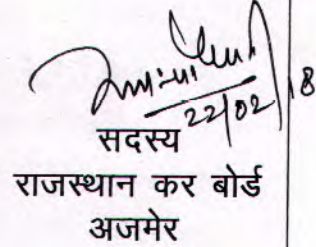 22/02/18
सदस्य
राजस्थान कर बोर्ड
अजमेर